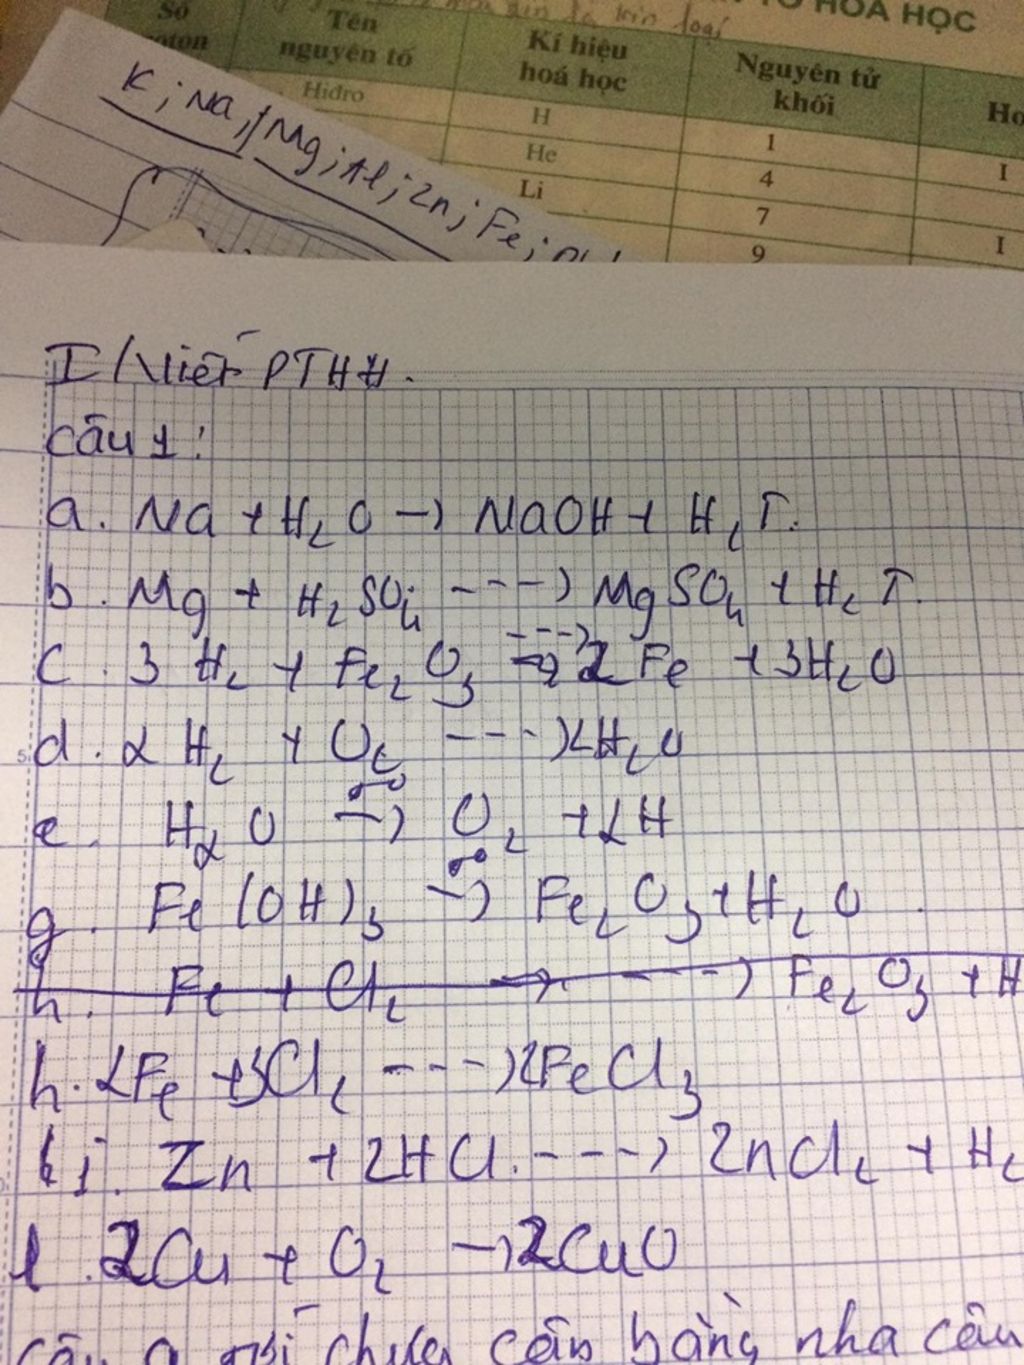 TỐ HOÁ HỌC
Số
proton
Tên
nguyên tố
Kí hiệu
hoá học
Nguyên tử
khối
Ho
Hiđro
H
1
I
He
4
Li
7
I
9
K; Na; Mg; Al; Zn; Fe;
I/ Viết PTHH.
Câu 1:
a. Na + H₂O → NaOH + H₂↑.
b. Mg + H₂SO₄ ---> MgSO₄ + H₂↑.
c. 3H₂ + Fe₂O₃ ---> 2Fe + 3H₂O
d. 2H₂ + O₂ ---> 2H₂O
e. H₂O → O₂ + 2H
g. Fe(OH)₃ → Fe₂O₃ + H₂O.
h. Fe + Cl₂ → ---> Fe₂O₃ + H
h. 2Fe + 3Cl₂ ---> 2FeCl₃
i. Zn + 2HCl. ---> ZnCl₂ + H₂
l. 2Cu + O₂ → 2CuO
chưa cân bằng nha câu